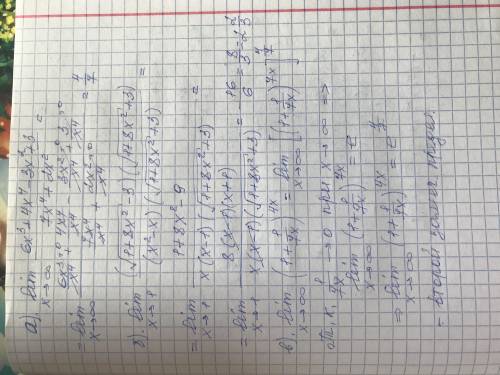 а) lim x→∞ (6x³+4x⁴-3x²+3)/(7x⁴+2x²) =
= lim x→∞ (6x³/x⁴ + 4x⁴/x⁴ - 3x²/x⁴ + 3/x⁴)/(7x⁴/x⁴ + 2x²/x⁴) = 4/7
б) lim x→1 (√1+8x² -3)(√1+8x² +3)/(x²-x)(√1+8x² +3) =
= lim x→1 1+8x²-9/x(x-1)(√1+8x² +3) =
= lim x→1 8(x-1)(x+1)/x(x-1)(√1+8x² +3) = 16/6 = 8/3 = 2 2/3
в) lim x→∞ (1+1/7x)^4x = lim x→∞ [(1+1/7x)^7x]^4/7
т.к. 1/7x → 0 при x→∞ =>
lim x→∞ (1+1/7x)^7x = e
=> lim x→∞ (1+1/7x)^4x = e^4/7
- второй замеч. предел.